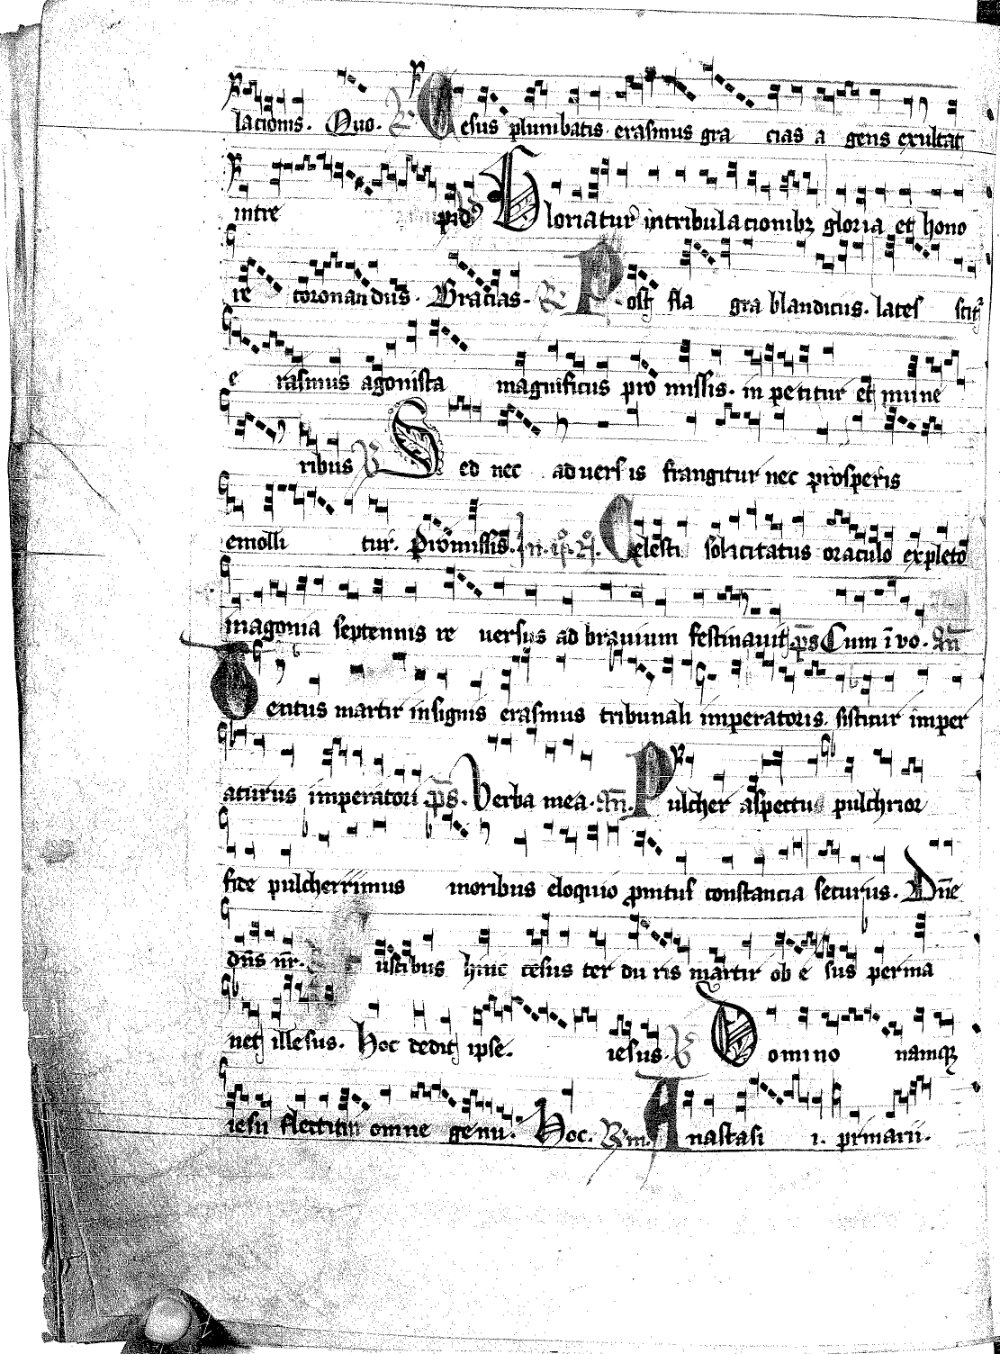 lacionis. Quo. R Cesus plumbatis erasmus gra cias a gens exultat
intre pid9 V Gloriatur in tribulacionibz gloria et hono
re coronandus. Gracias. R Post fla gra blandicus. lates scit
e rasmus agonista magnificus pro missis. in petitur et mune
ribus V Sed nec adversis frangitur nec prosperis
emolli tur. Promissis. In. Celesti solicitatus oraculo expleto
in agonia septennis re versus ad bravium festinavit ps Cum ivo. an
Ventus martir insignis erasmus tribunali imperatoris. sistitur imper
aturus imperatori. ps. Verba mea. an. Pulcher aspectu pulchrior
fide pulcherrimus moribus eloquio pmtus constancia securus. Dne
dns nr. R ustibus hinc cesus ter du ris martir ob e sus perma
net illesus. Hoc dedit ipse. iesus. V Domino namqz
iesu flectitur omne genu. Hoc. Rm. Anastasi i. primarii.